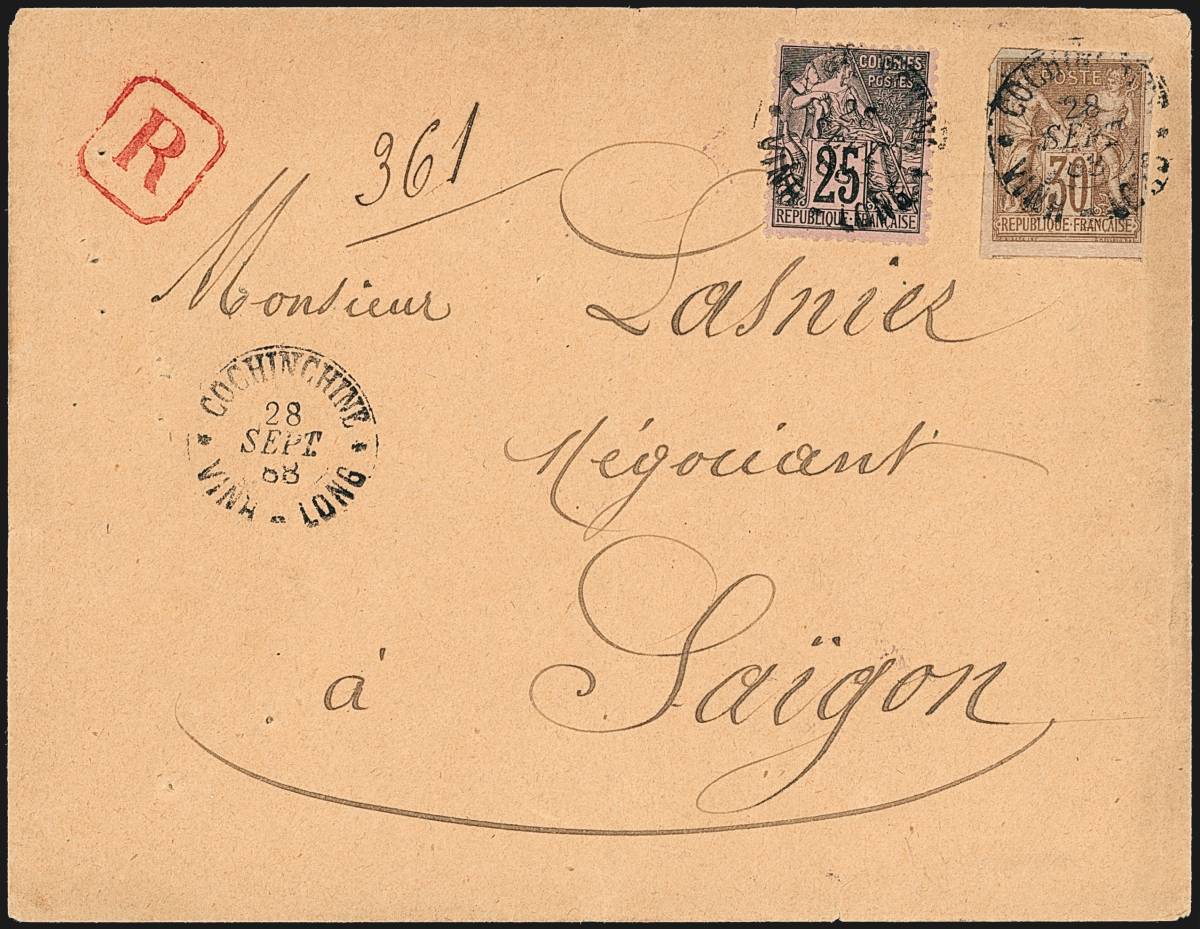 R
361
COLONIES
POSTES
25
REPUBLIQUE FRANÇAISE
POSTE
30
REPUBLIQUE FRANÇAISE
COCHINCHINE
28
SEPT
VINH - LONG
Monsieur Lasnier
Négociant
COCHINCHINE
28
SEPT.
88
VINH - LONG
à Saïgon